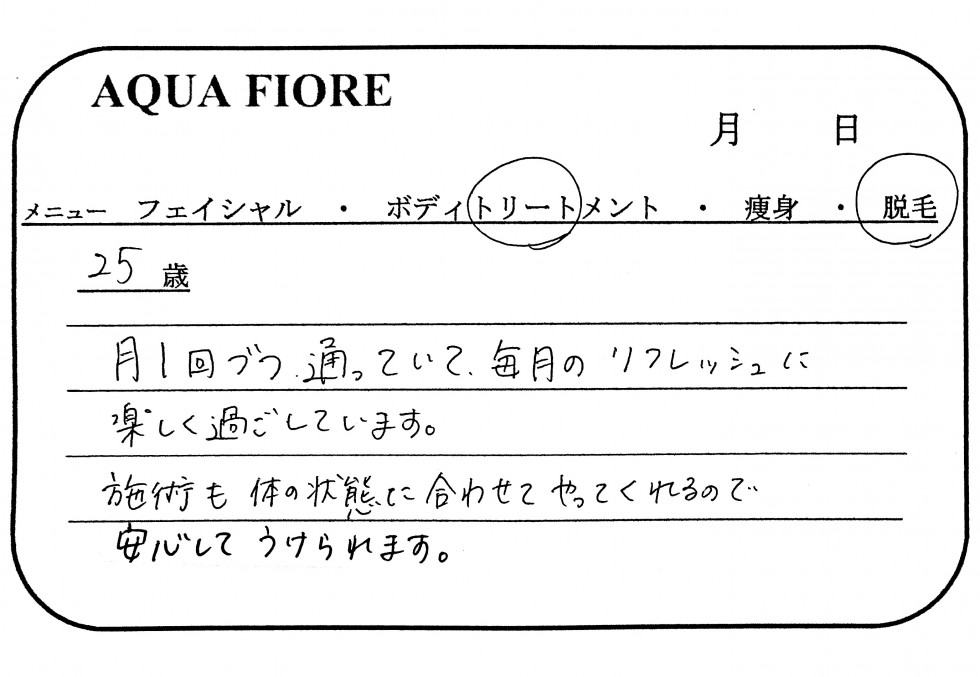 AQUA FIORE
月 日
メニュー フェイシャル ・ ボディトリートメント ・ 痩身 ・ 脱毛
25 歳
月1回づつ通っていて、毎月のリフレッシュに
楽しく過ごしています。
施術も体の状態に合わせてやってくれるので
安心してうけられます。